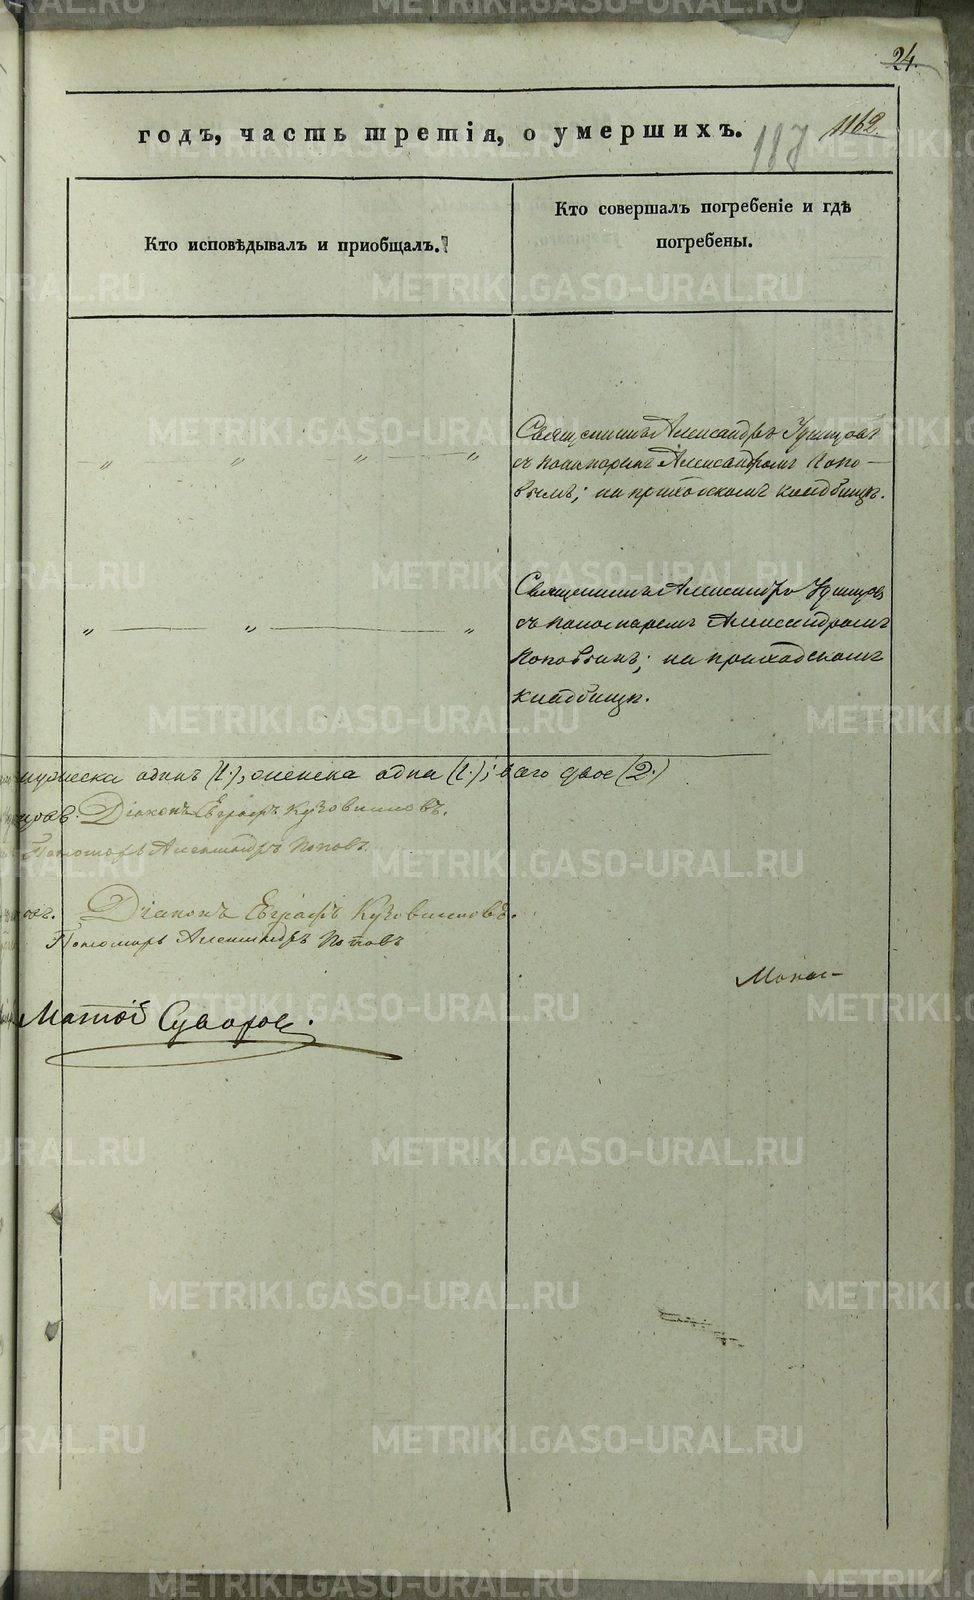 24.
годъ, часть третія, о умершихъ.
187
1162.
Кто исповѣдывалъ и приобщалъ.
Кто совершалъ погребеніе и гдѣ
погребены.
Священникъ Александръ Удинцовъ
съ пономаремъ Александромъ Попо-
вымъ; на приходскомъ кладбищѣ.
Священникъ Александръ Удинцовъ
съ пономаремъ Александромъ
Поповымъ; на приходскомъ
кладбищѣ.
мужеска одинъ (1.), женска одна (1.); всего двое (2.)
Діаконъ Евграфъ Кузовниковъ.
Пономарь Александръ Поповъ.
Діаконъ Евграфъ Кузовниковъ.
Пономарь Александръ Поповъ
Монас-
Матѳій Суворов.
METRIKI.GASO-URAL.RU